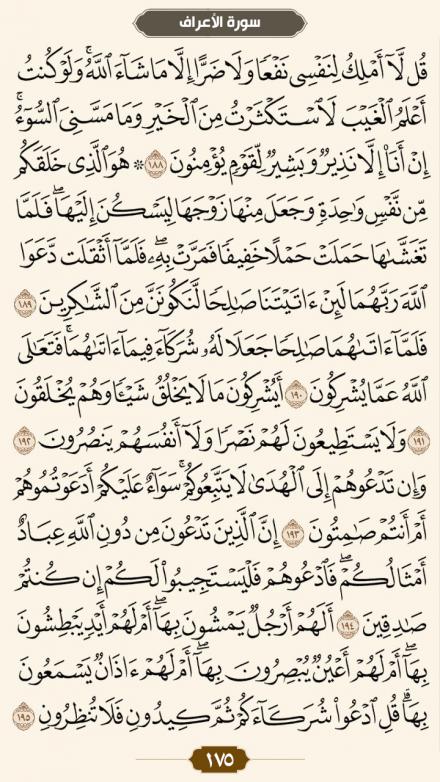 سورة الأعراف
قُل لَّآ أَمْلِكُ لِنَفْسِى نَفْعًا وَلَا ضَرًّا إِلَّا مَا شَآءَ ٱللَّهُ ۚ وَلَوْ كُنتُ
أَعْلَمُ ٱلْغَيْبَ لَٱسْتَكْثَرْتُ مِنَ ٱلْخَيْرِ وَمَا مَسَّنِىَ ٱلسُّوٓءُ ۚ
إِنْ أَنَا۠ إِلَّا نَذِيرٌ وَبَشِيرٌ لِّقَوْمٍ يُؤْمِنُونَ ١٨٨ ۞ هُوَ ٱلَّذِى خَلَقَكُم
مِّن نَّفْسٍ وَٰحِدَةٍ وَجَعَلَ مِنْهَا زَوْجَهَا لِيَسْكُنَ إِلَيْهَا ۖ فَلَمَّا
تَغَشَّىٰهَا حَمَلَتْ حَمْلًا خَفِيفًا فَمَرَّتْ بِهِۦ ۖ فَلَمَّآ أَثْقَلَت دَّعَوَا
ٱللَّهَ رَبَّهُمَا لَئِنْ ءَاتَيْتَنَا صَٰلِحًا لَّنَكُونَنَّ مِنَ ٱلشَّٰكِرِينَ ١٨٩
فَلَمَّآ ءَاتَىٰهُمَا صَٰلِحًا جَعَلَا لَهُۥ شُرَكَآءَ فِيمَآ ءَاتَىٰهُمَا ۚ فَتَعَٰلَى
ٱللَّهُ عَمَّا يُشْرِكُونَ ١٩٠ أَيُشْرِكُونَ مَا لَا يَخْلُقُ شَيْـًٔا وَهُمْ يُخْلَقُونَ
١٩١ وَلَا يَسْتَطِيعُونَ لَهُمْ نَصْرًا وَلَآ أَنفُسَهُمْ يَنصُرُونَ ١٩٢
وَإِن تَدْعُوهُمْ إِلَى ٱلْهُدَىٰ لَا يَتَّبِعُوكُمْ ۚ سَوَآءٌ عَلَيْكُمْ أَدَعَوْتُمُوهُمْ
أَمْ أَنتُمْ صَٰمِتُونَ ١٩٣ إِنَّ ٱلَّذِينَ تَدْعُونَ مِن دُونِ ٱللَّهِ عِبَادٌ
أَمْثَالُكُمْ ۖ فَٱدْعُوهُمْ فَلْيَسْتَجِيبُوا۟ لَكُمْ إِن كُنتُمْ
صَٰدِقِينَ ١٩٤ أَلَهُمْ أَرْجُلٌ يَمْشُونَ بِهَآ ۖ أَمْ لَهُمْ أَيْدٍ يَبْطِشُونَ
بِهَآ ۖ أَمْ لَهُمْ أَعْيُنٌ يُبْصِرُونَ بِهَآ ۖ أَمْ لَهُمْ ءَاذَانٌ يَسْمَعُونَ
بِهَا ۗ قُلِ ٱدْعُوا۟ شُرَكَآءَكُمْ ثُمَّ كِيدُونِ فَلَا تُنظِرُونِ ١٩٥
١٧٥